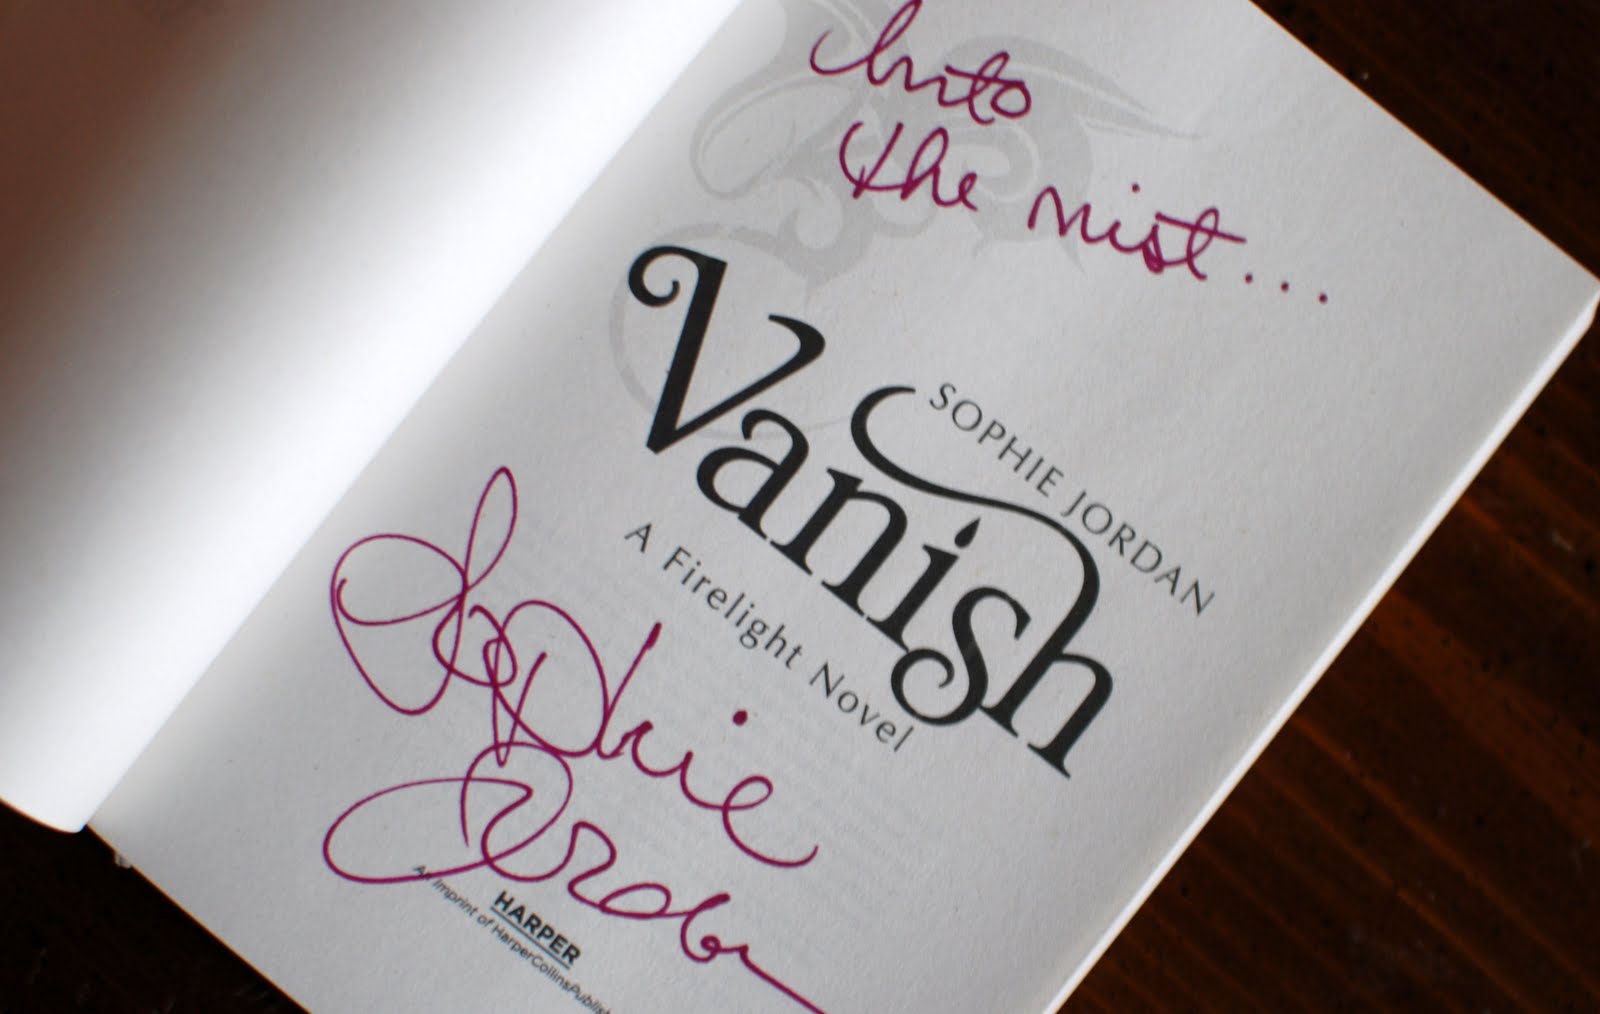 Into
the mist...
SOPHIE JORDAN
Vanish
A Firelight Novel
Sophie
Jordan
HARPER
An Imprint of HarperCollinsPublish